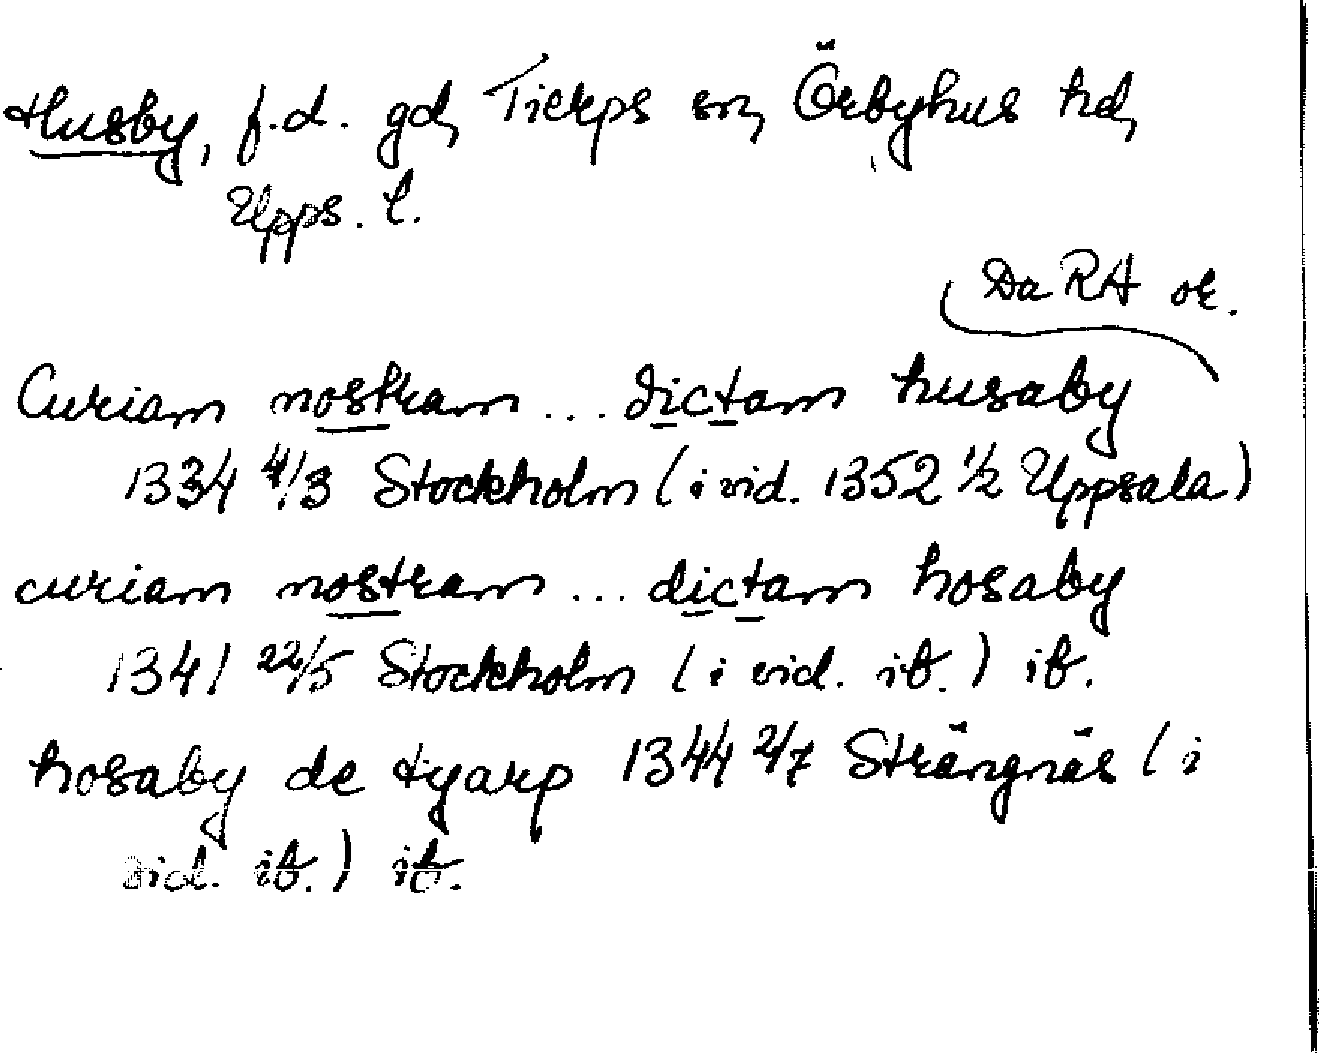 Husby, f.d. gd, Tierps sn, Örbyhus hd,
Upps. l.
Da RA or.
Curiam nostram ... dictam husaby
1334 4/3 Stockholm (i vid. 1352 1/2 Uppsala)
curiam nostram ... dictam hosaby
1341 22/5 Stockholm (i vid. ib.) ib.
hosaby de tyarp 1344 2/7 Strängnäs (i
vid. ib.) ib.